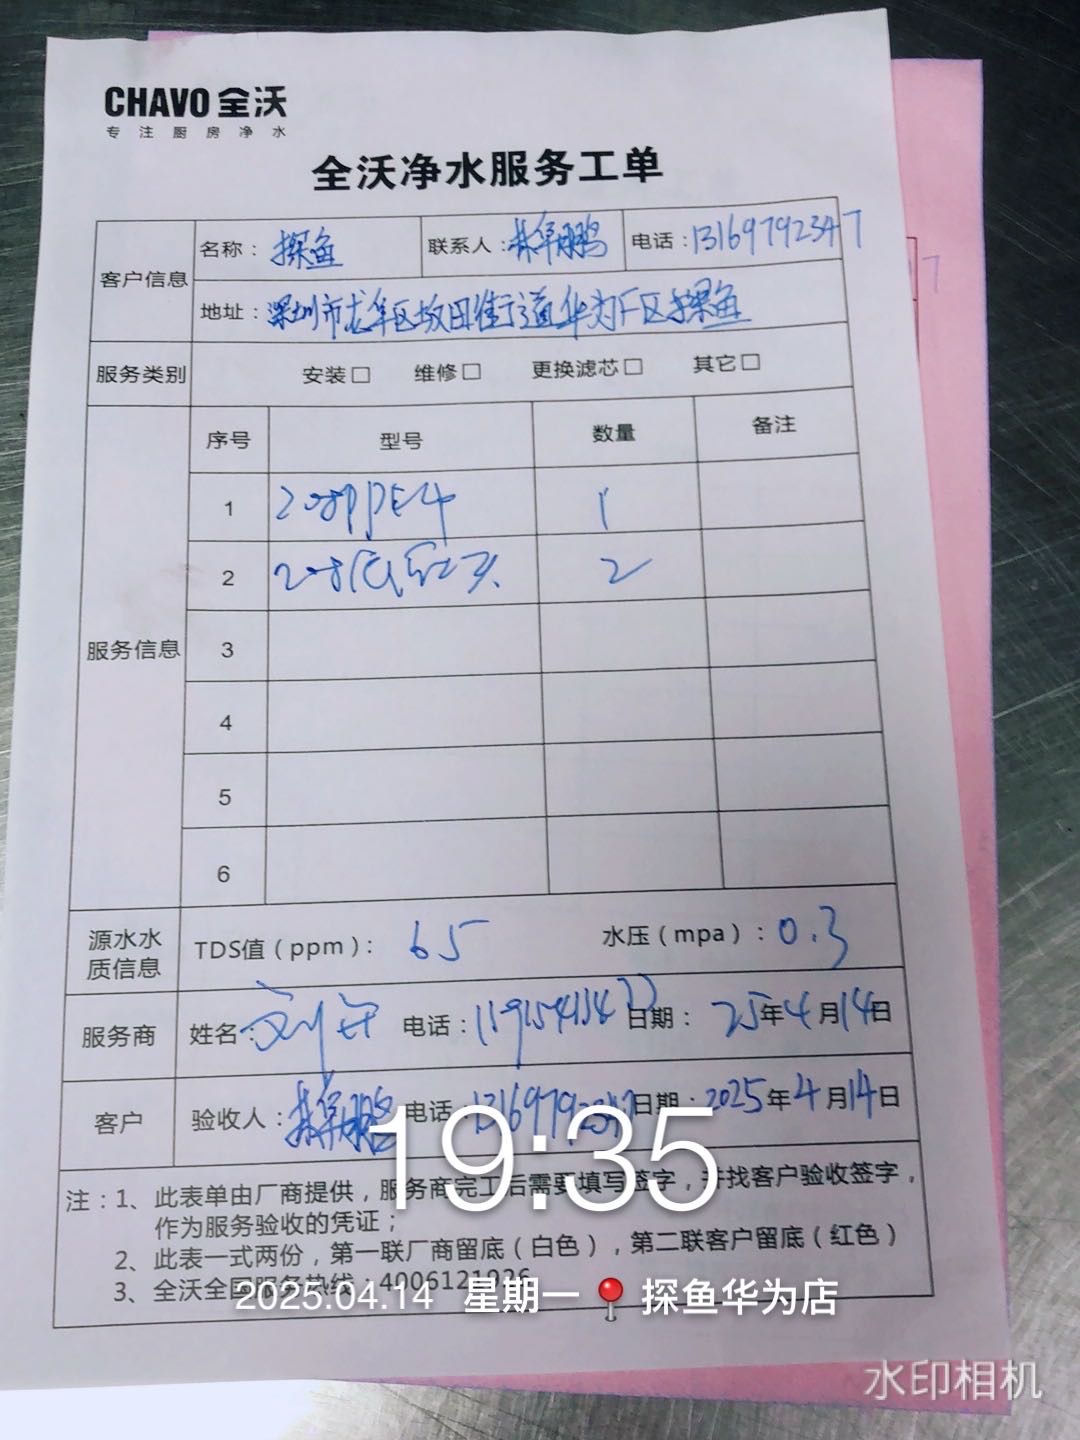 CHAVO 全沃
专注厨房净水
全沃净水服务工单
客户信息 名称：探鱼 联系人：林华鹏 电话：13169792347
地址：深圳市龙华区坂田街道华为F区探鱼
服务类别 安装□ 维修□ 更换滤芯□ 其它□
服务信息 序号 型号 数量 备注
1 1
2 2
3
4
5
6
源水水质信息 TDS值（ppm）： 65 水压（mpa）：0.3
服务商 姓名： 电话： 日期： 25年4月14日
客户 验收人：林华鹏 电话：13169792347 日期：2025年4月14日
注：1、此表单由厂商提供，服务商完工后需要填写签字，并找客户验收签字，
作为服务验收的凭证；
2、此表一式两份，第一联厂商留底（白色），第二联客户留底（红色）
3、全沃全国服务热线：4006121926
19:35
2025.04.14 星期一 探鱼华为店
水印相机